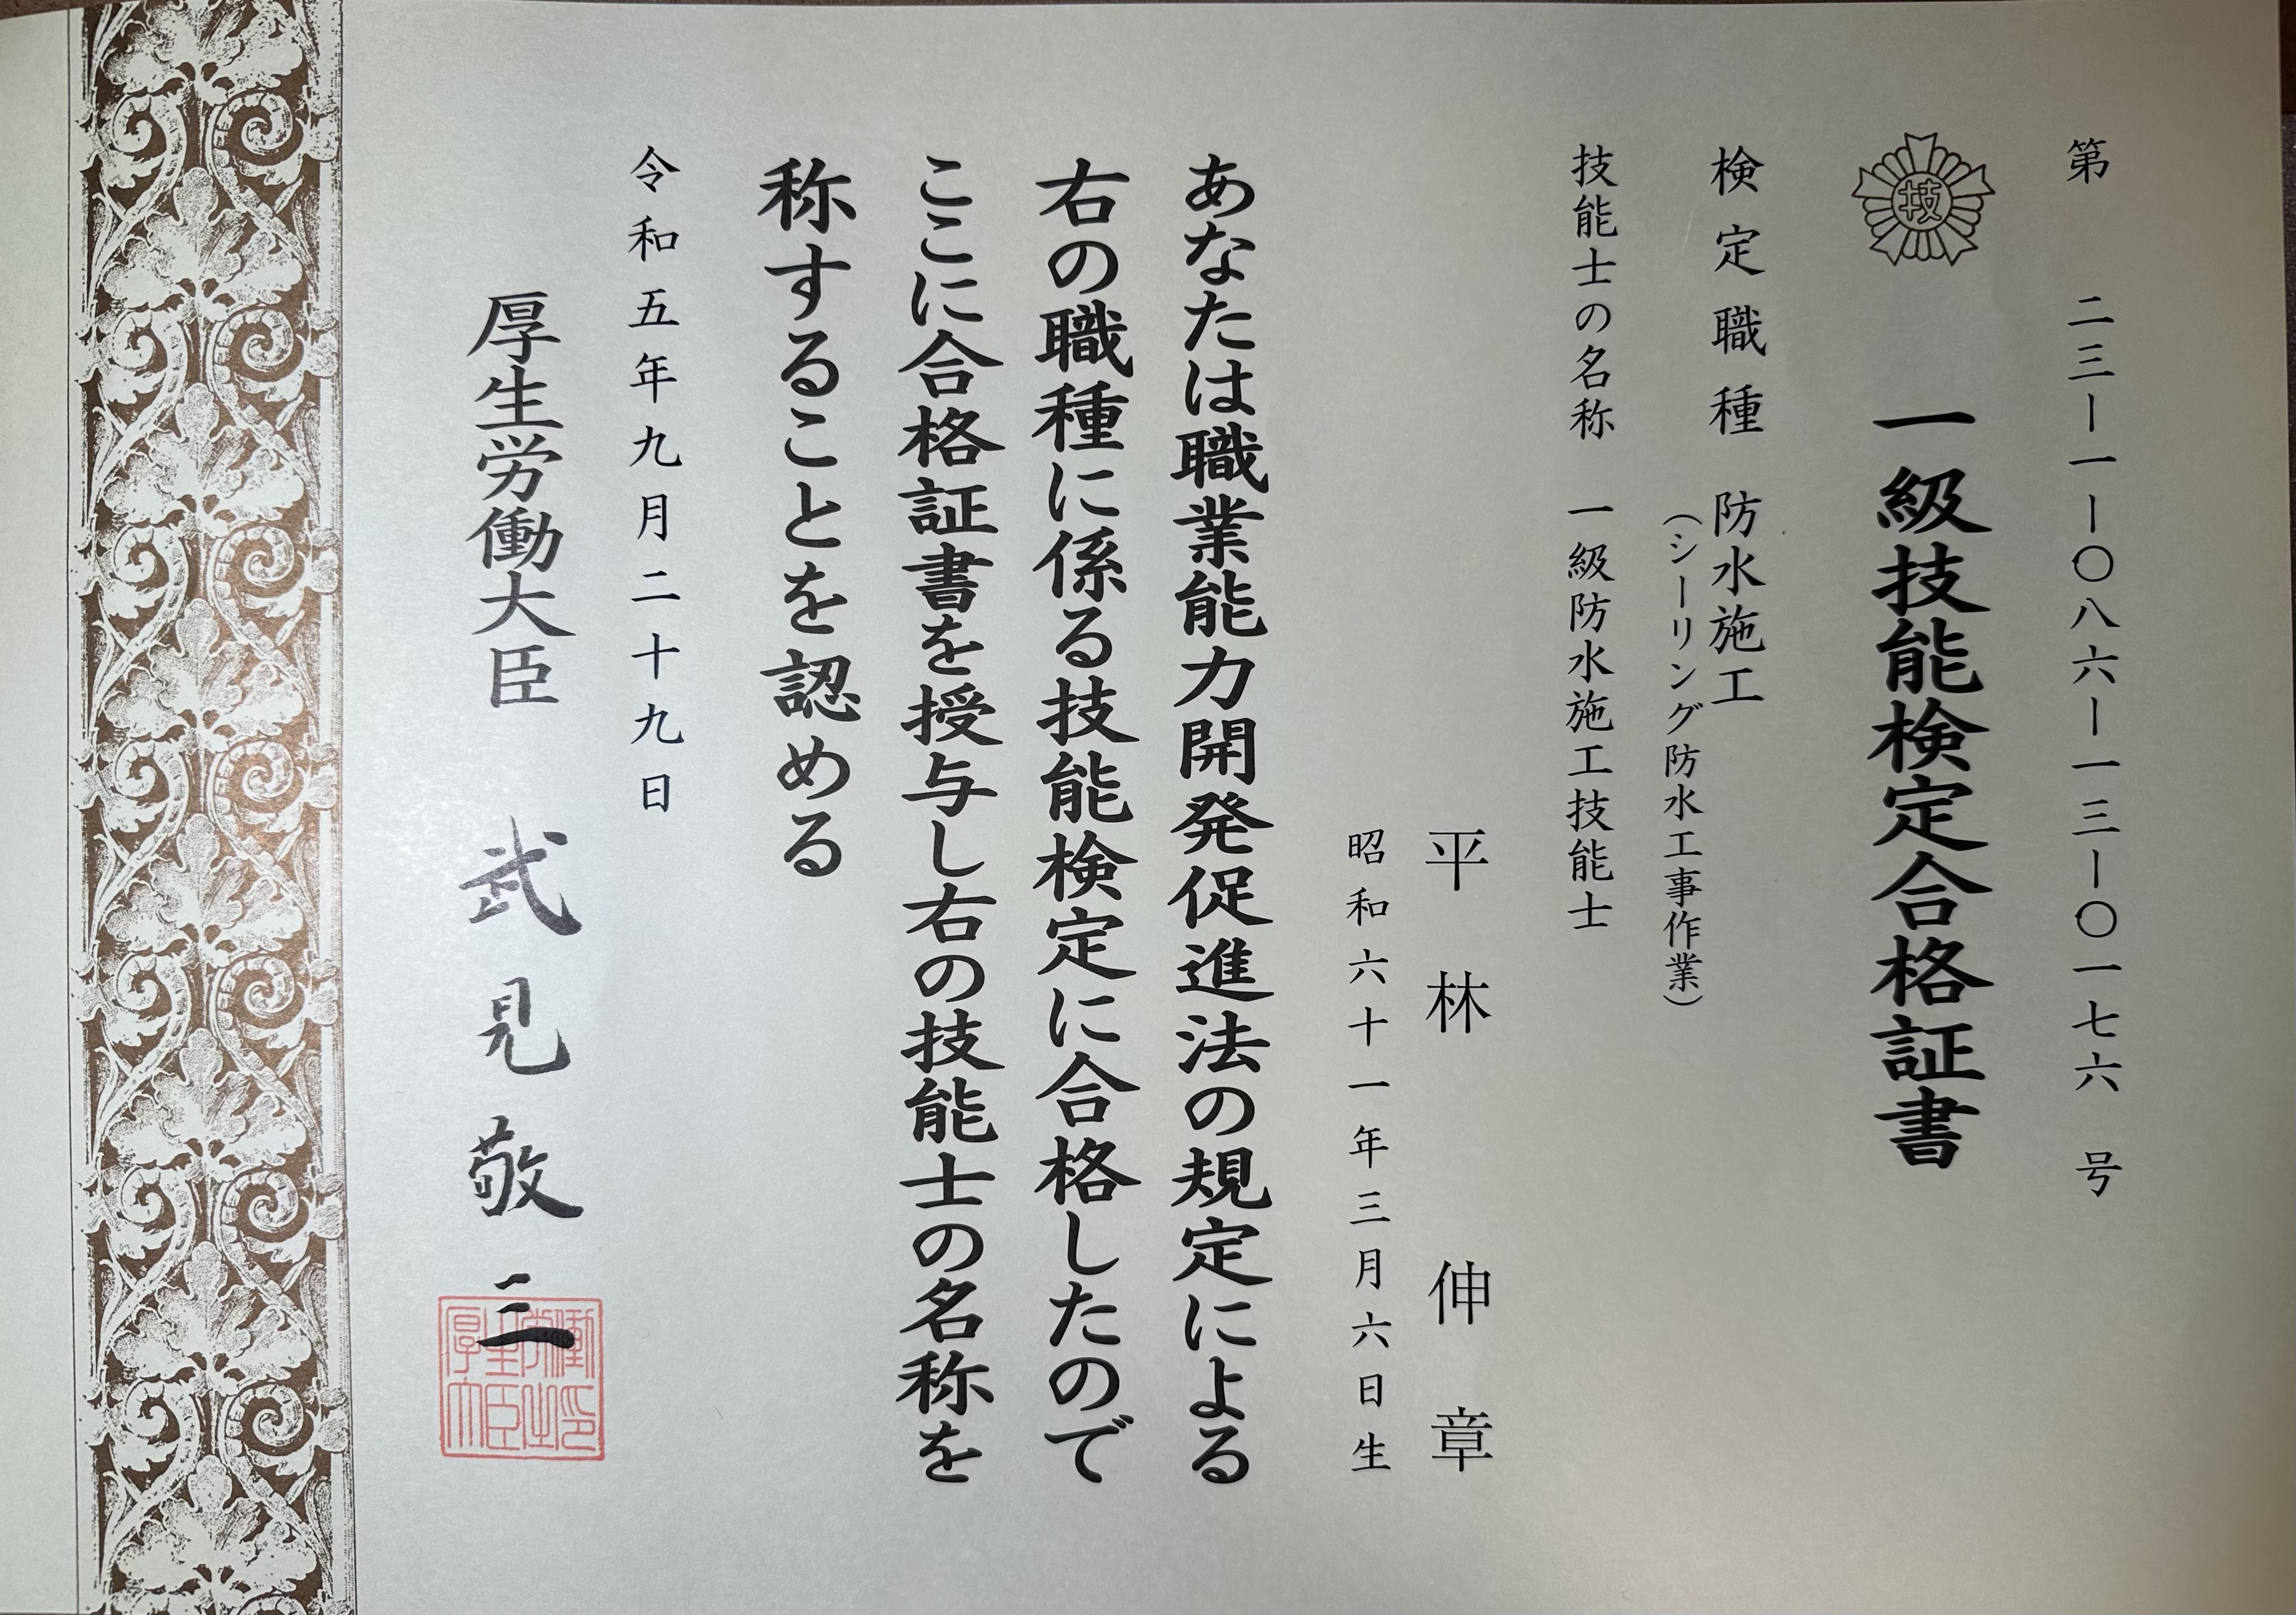 第　二三ー一ー〇八六ー一三ー〇一七六　号
技
一級技能検定合格証書
検定職種　防水施工
（シーリング防水工事作業）
技能士の名称　一級防水施工技能士
平林　伸章
昭和六十一年三月六日生
あなたは職業能力開発促進法の規定による
右の職種に係る技能検定に合格したので
ここに合格証書を授与し右の技能士の名称を
称することを認める
令和五年九月二十九日
厚生労働大臣　武見敬三
厚生労働大臣之印